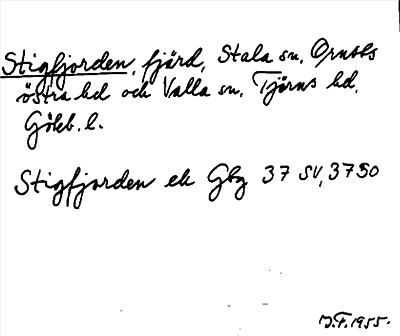 Stigfjorden, fjärd, Stala sn, Orusts
östra hd och Valla sn, Tjörns hd,
Götb. l.
Stigfjorden ek Gbg 37 SV, 3750
J.F. 1955.